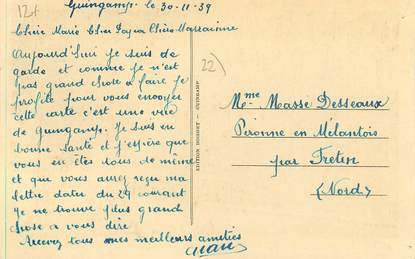 12+
Guingamp. le 30-11-39
Chère Marie Cher Chère Marrainne
Aujourd'hui je suis de
garde et comme je n'est
pas grand chose a faire je
profite pour vous envoyer
cette carte c'est une vue
de Guingamp. Je suis en
bonne santé et j'espère que
vous en êtes tous de même
et que vous aurez reçu ma
lettre dater du 29 courant
je ne trouve plus grand
chose a vous dire
Recevez tous mes meilleurs amitiés
22)
EDITION GUINGAMP
Mme Masse Desseaux
Péronne en Mélantois
par Fretin
(Nord)